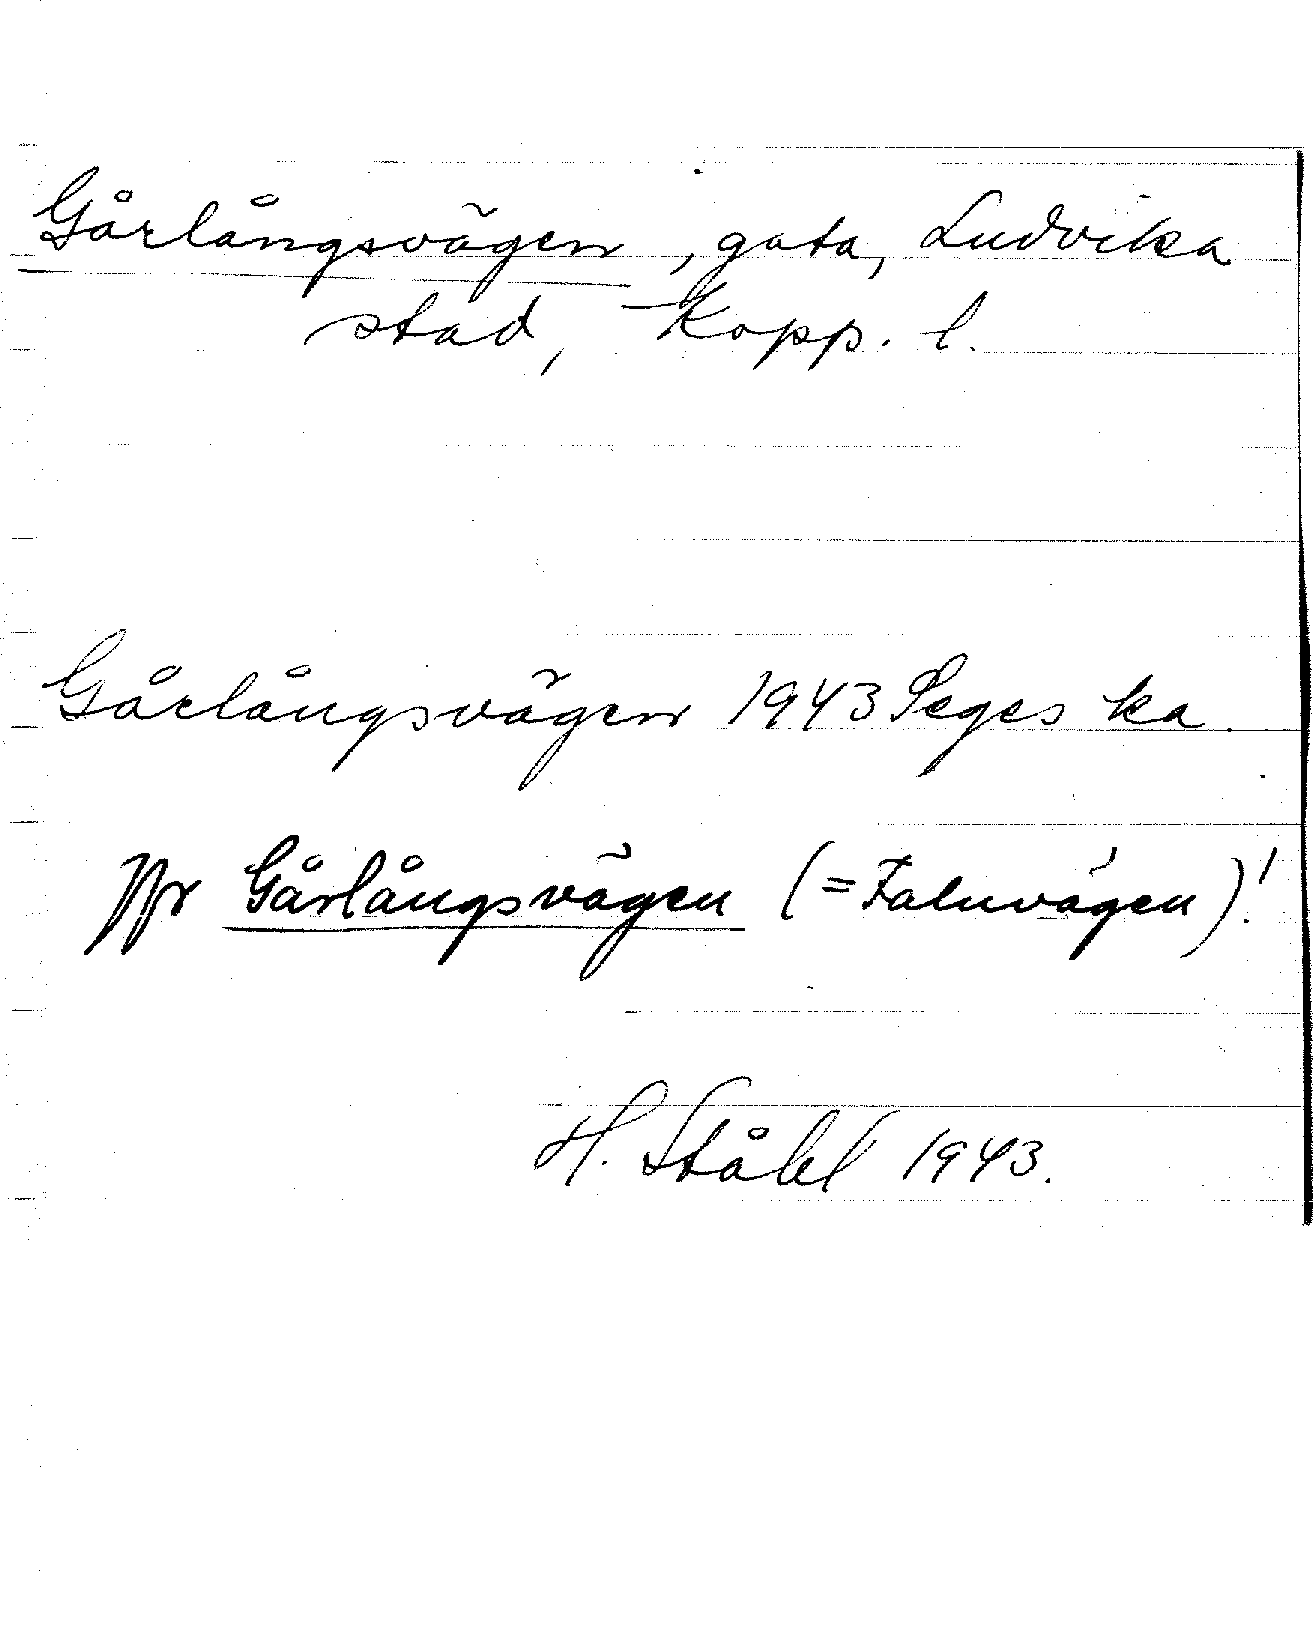 Gårlångsvägen, gata, Ludvika
stad, Kopp. l.
Gårlångsvägen 1943 Seges ka.
Gårlångsvägen (=Faluvägen)!
H. Ståhl 1943.